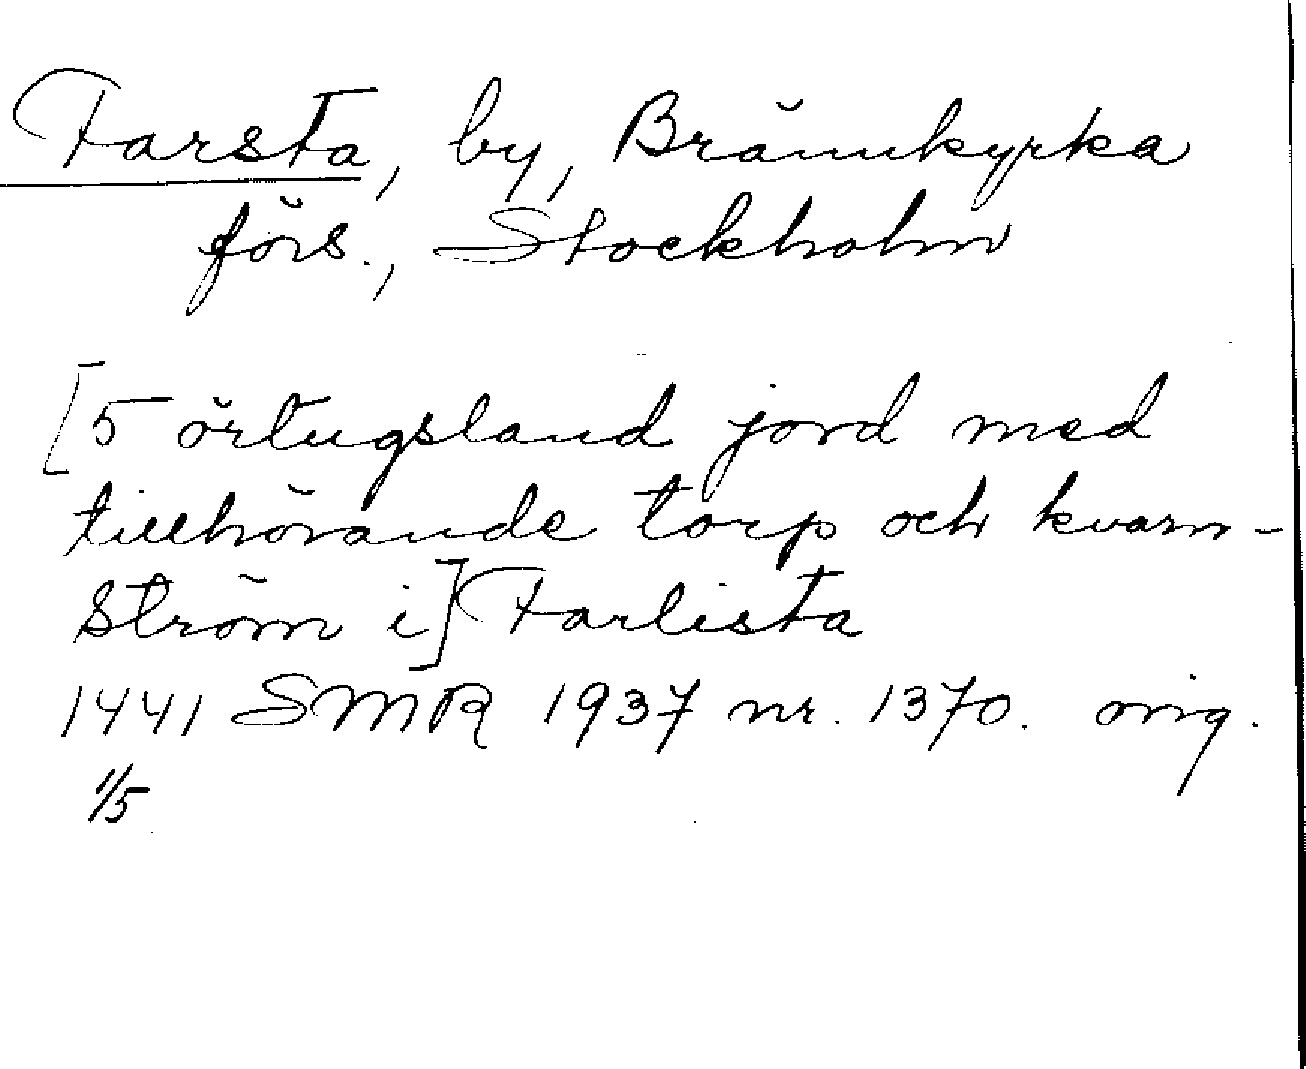 Farsta, by, Brännkyrka
förs., Stockholm
[5 örtugsland jord med
tillhörande torp och kvarn-
ström i] Farlista
1441 SMR 1937 nr. 1370. orig.
1/5